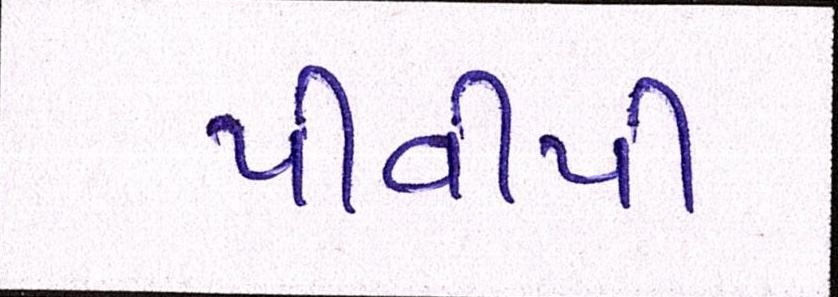 પીવીપી